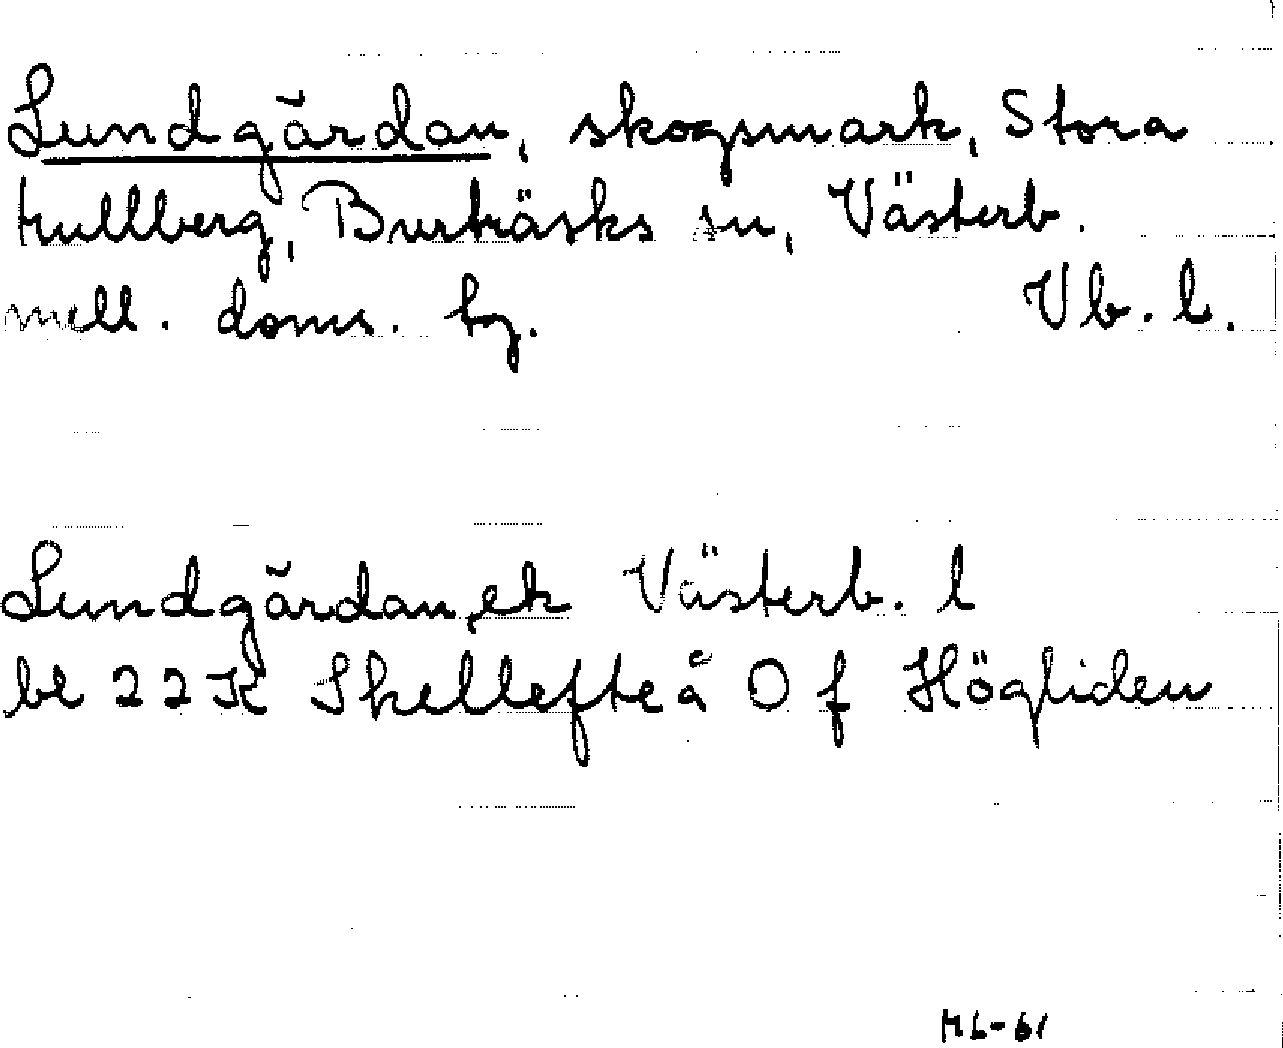 Lundgärdan, skogsmark, Stora
kullberg, Burträsks sn, Västerb.
mell. doms. bg. Vb. l.
Lundgärdan, ek Västerb. l
bl 22K Skellefteå O f Högliden
ML-61